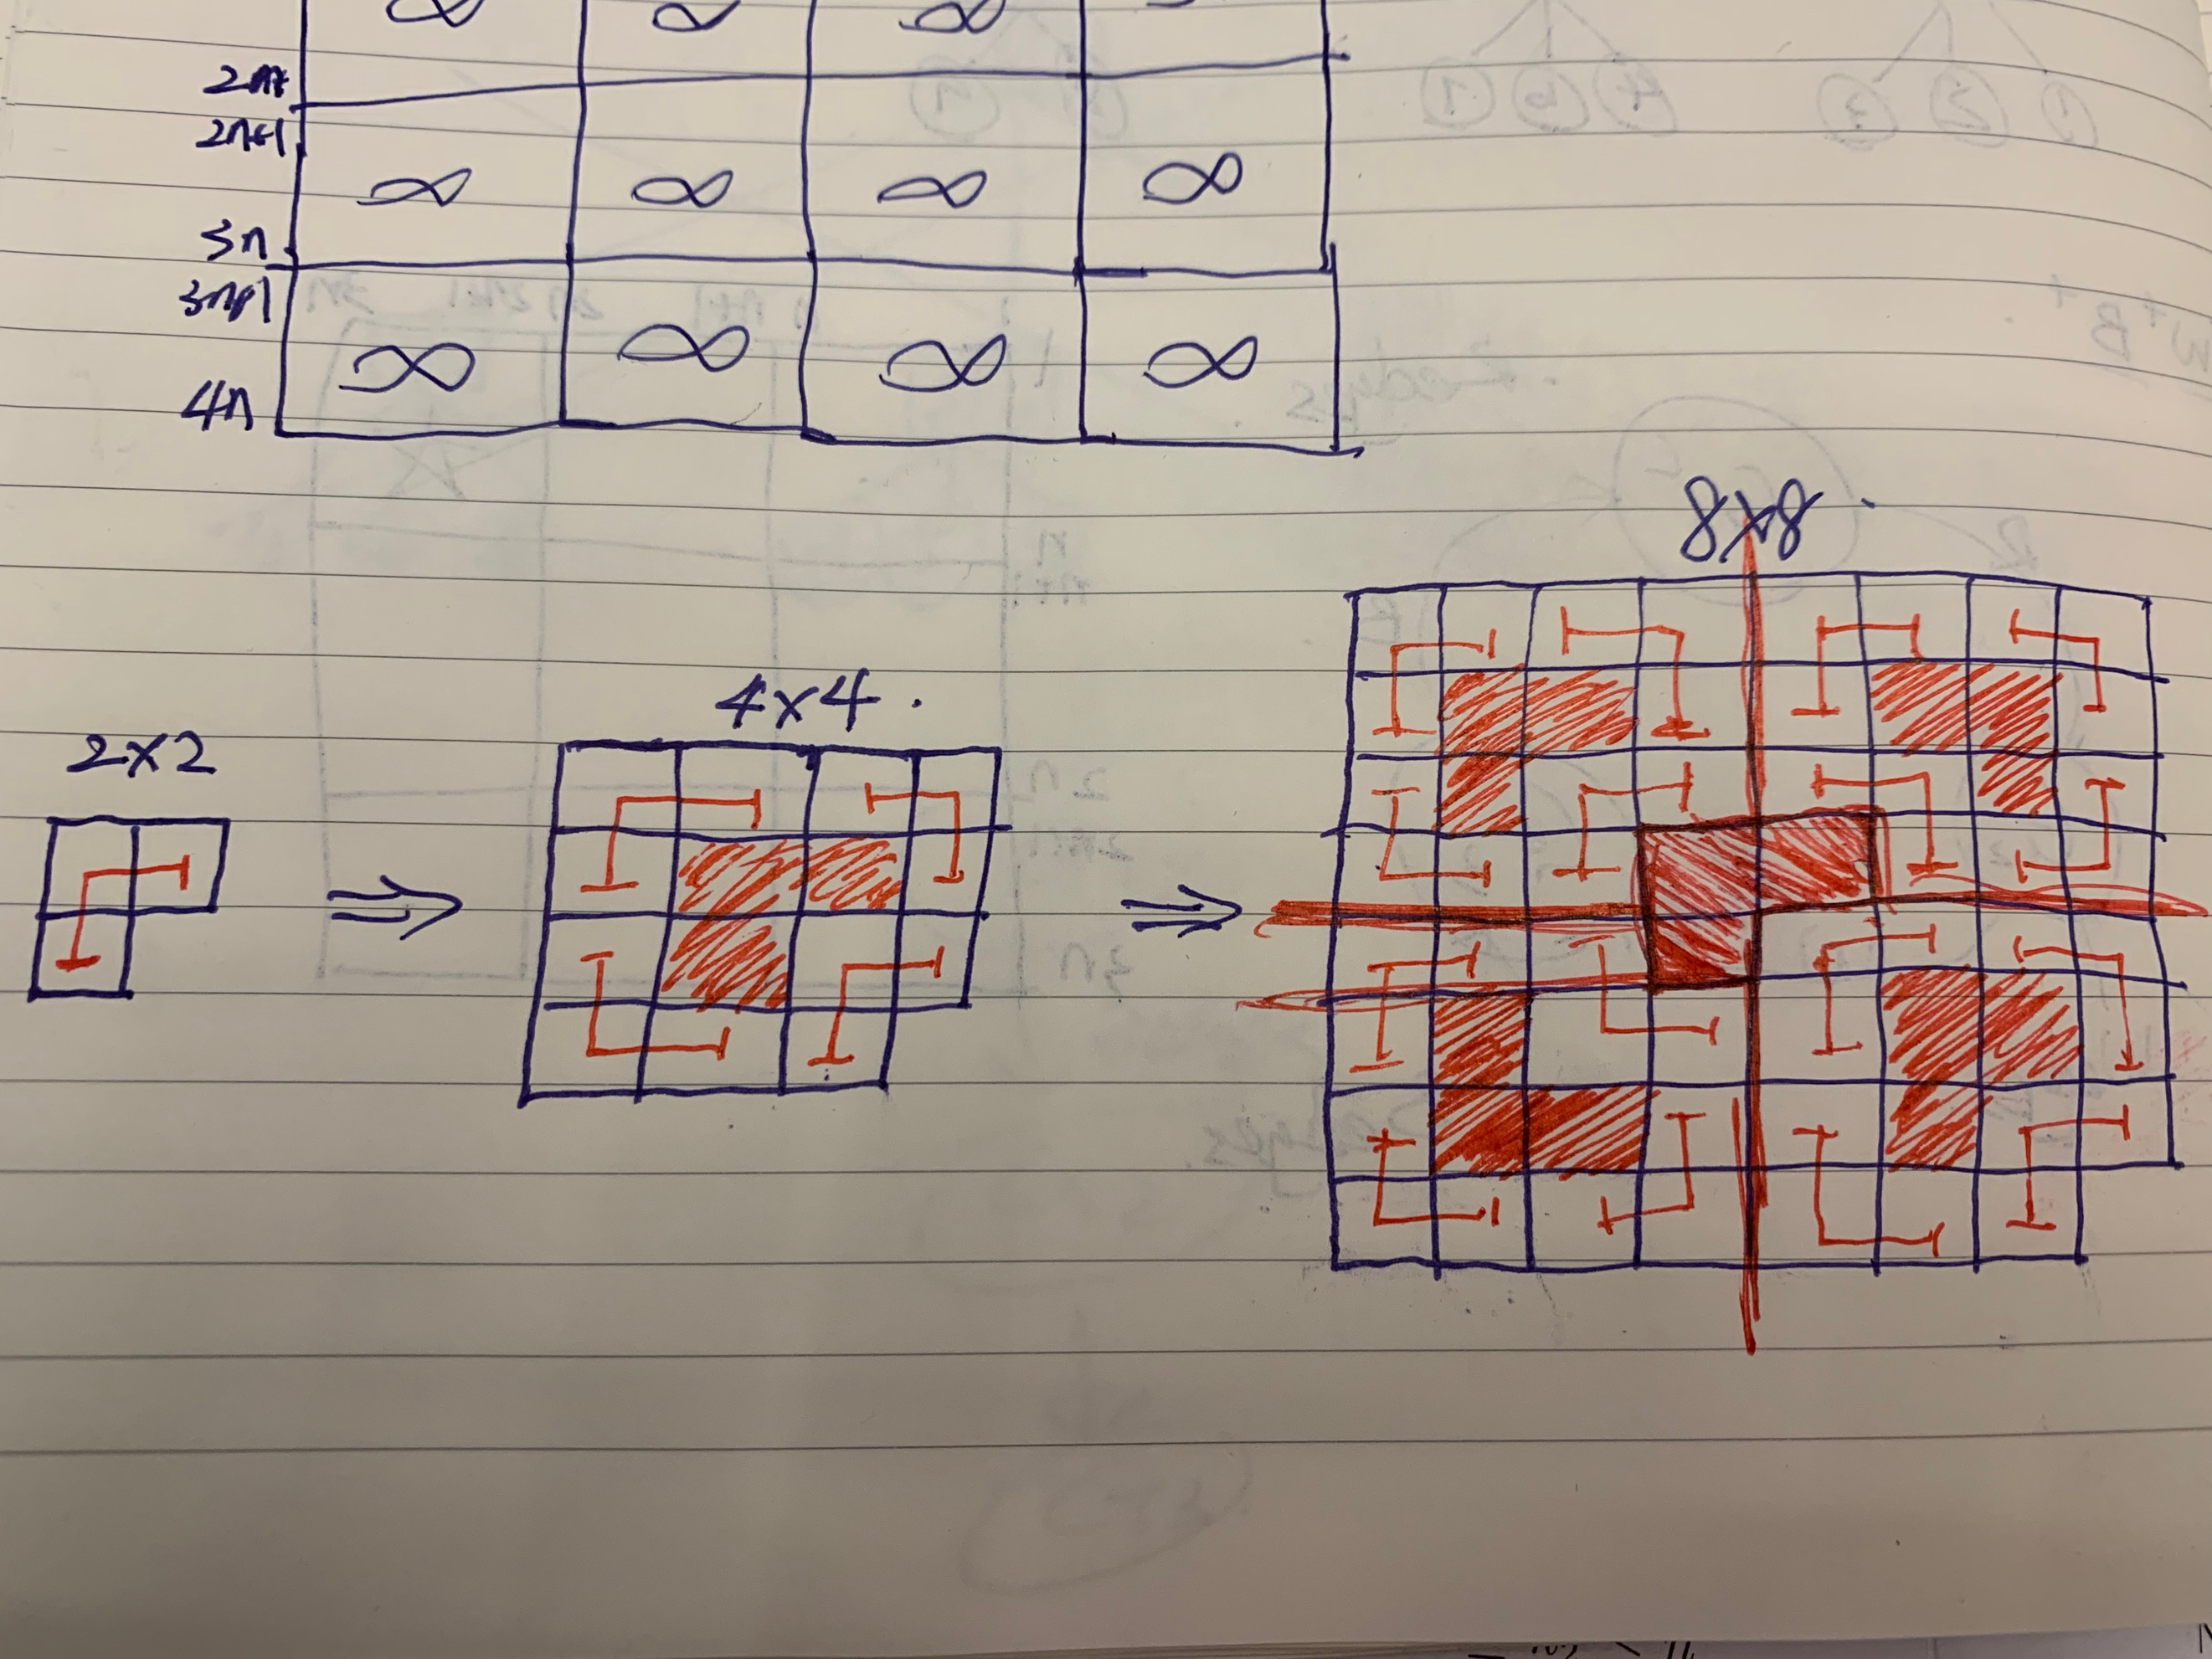 ∞ ∞ ∞
2n
2n+1
∞ ∞ ∞ ∞
3n
3n+1
∞ ∞ ∞ ∞
4n
8x8
4x4.
2x2
⇒ ⇒